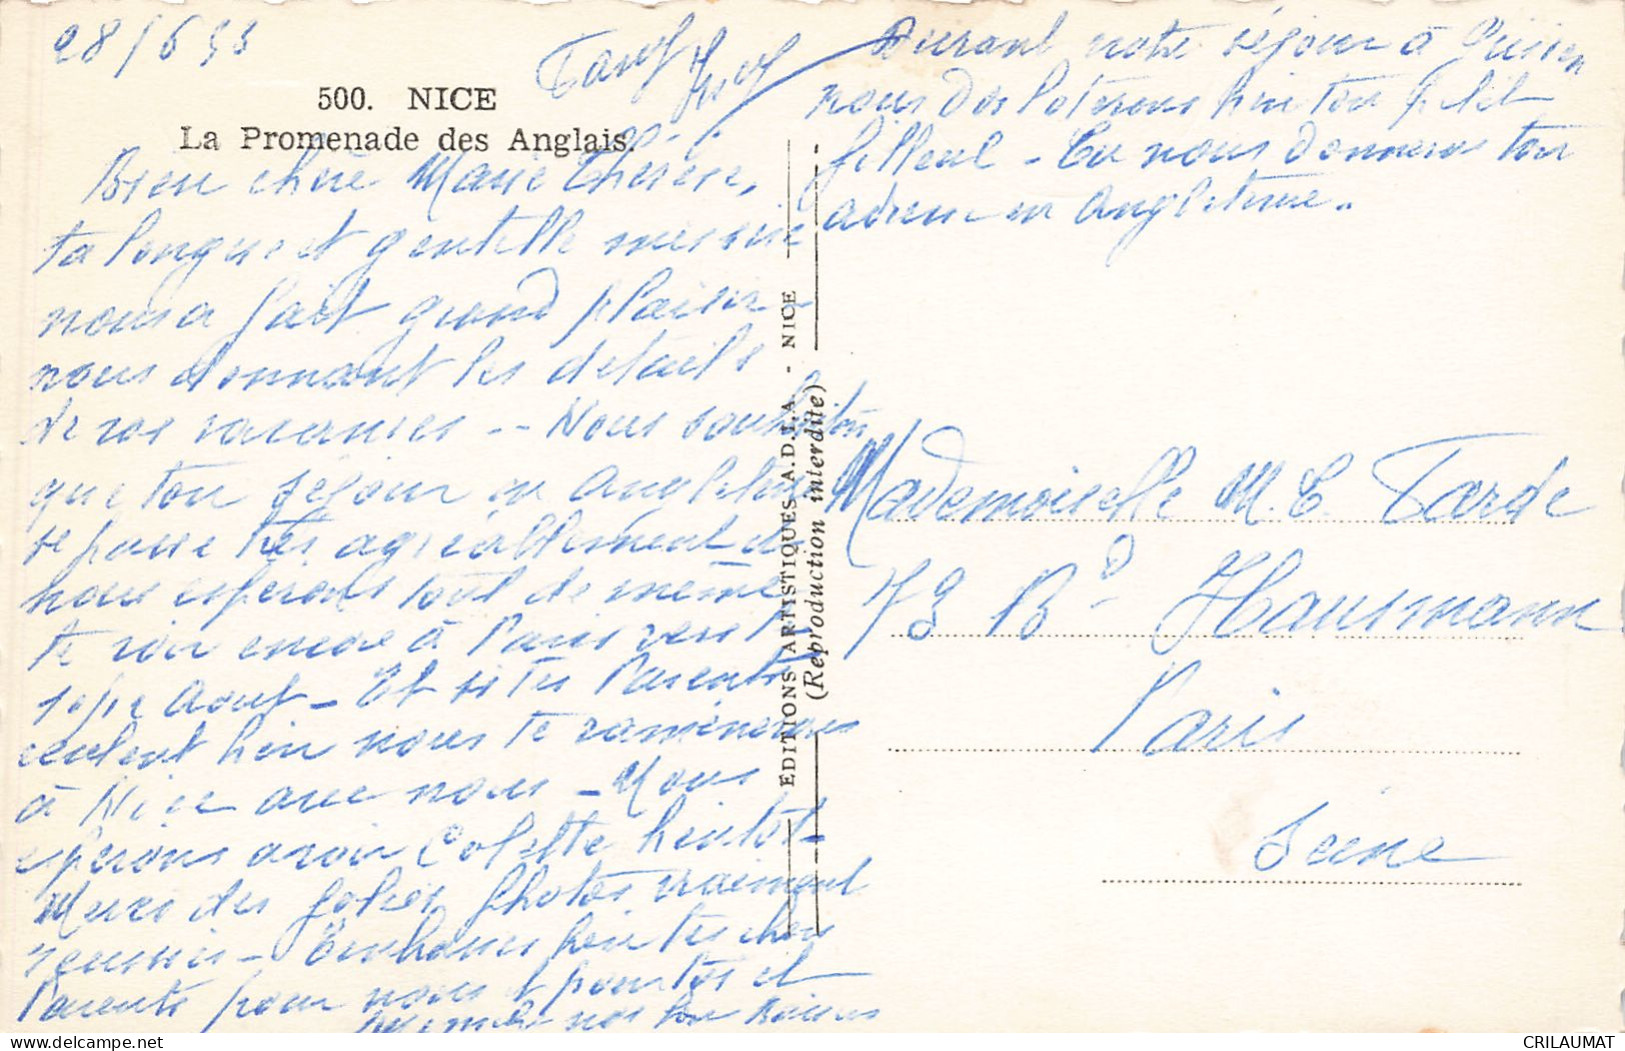 28/6 53
500. NICE
La Promenade des Anglais.
Bien chère Marie Thérèse,
ta longue et gentille missive
nous a fait grand plaisir
nous donnant les détails
de vos vacances -- Nous souhaitons
que ton séjour en Angleterre
se passe très agréablement et
nous espérons tout de même
te voir encore à Paris vers le
Aout - Et si tes Parents
veulent bien nous te ramènerons
à Nice avec nous - Nous
espérons avoir Colette bientôt -
Merci des jolies photos vraiment
réussies - Embrasses bien tes chers
Parents pour nous et pour toi et
nos bons Baisers
Durant notre séjour à
nous bien ton petit
filleul - Tu nous donneras ton
adresse en Angleterre.
EDITIONS ARTISTIQUES A.D.I.A. - NICE
(Reproduction interdite)
Mademoiselle M. T. Tarde
73 Bd Hausmann
Paris
Seine
CRILAUMAT